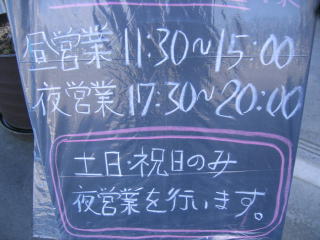 昼営業 11:30〜15:00
夜営業 17:30〜20:00
土日・祝日のみ
夜営業を行います。